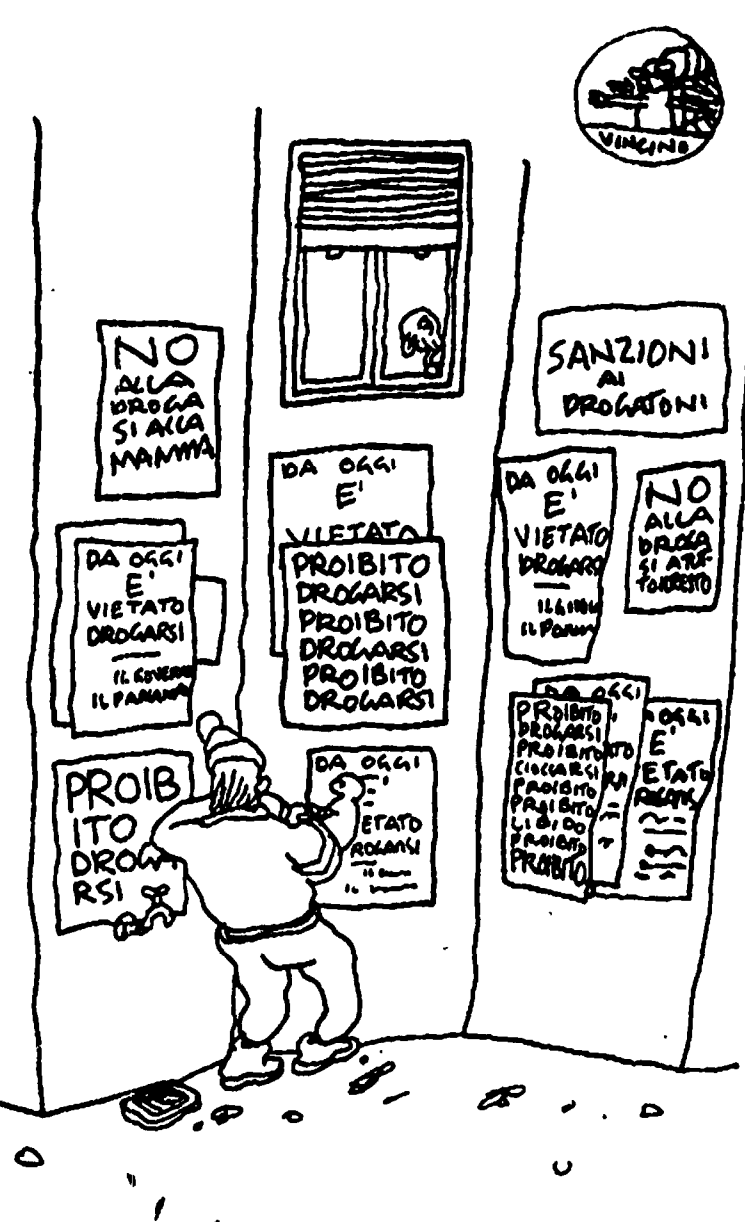 VINCINO
NO
ALLA
DROGA
SI ALLA
MAMMA
DA OGGI
E'
VIETATO
DROGARSI
IL GOVERNO
IL PANAMA
PROIB
ITO
DROGA
RSI
DA OGGI
E'
VIETATO
PROIBITO
DROGARSI
PROIBITO
DROGARSI
PROIBITO
DROGARSI
DA OGGI
E'
ETATO
ROGARSI
SANZIONI
AI
DROGATONI
DA OGGI
E'
VIETATO
DROGARSI
IL
IL
NO
ALLA
DROGA
SI
DA OGGI
PROIBITO
DROGARSI
PROIBITO
CIOCCARSI
PROIBITO
PROIBITO
LIBIDO
PROIBITO
PROIBITO
OGGI
E'
ETATO